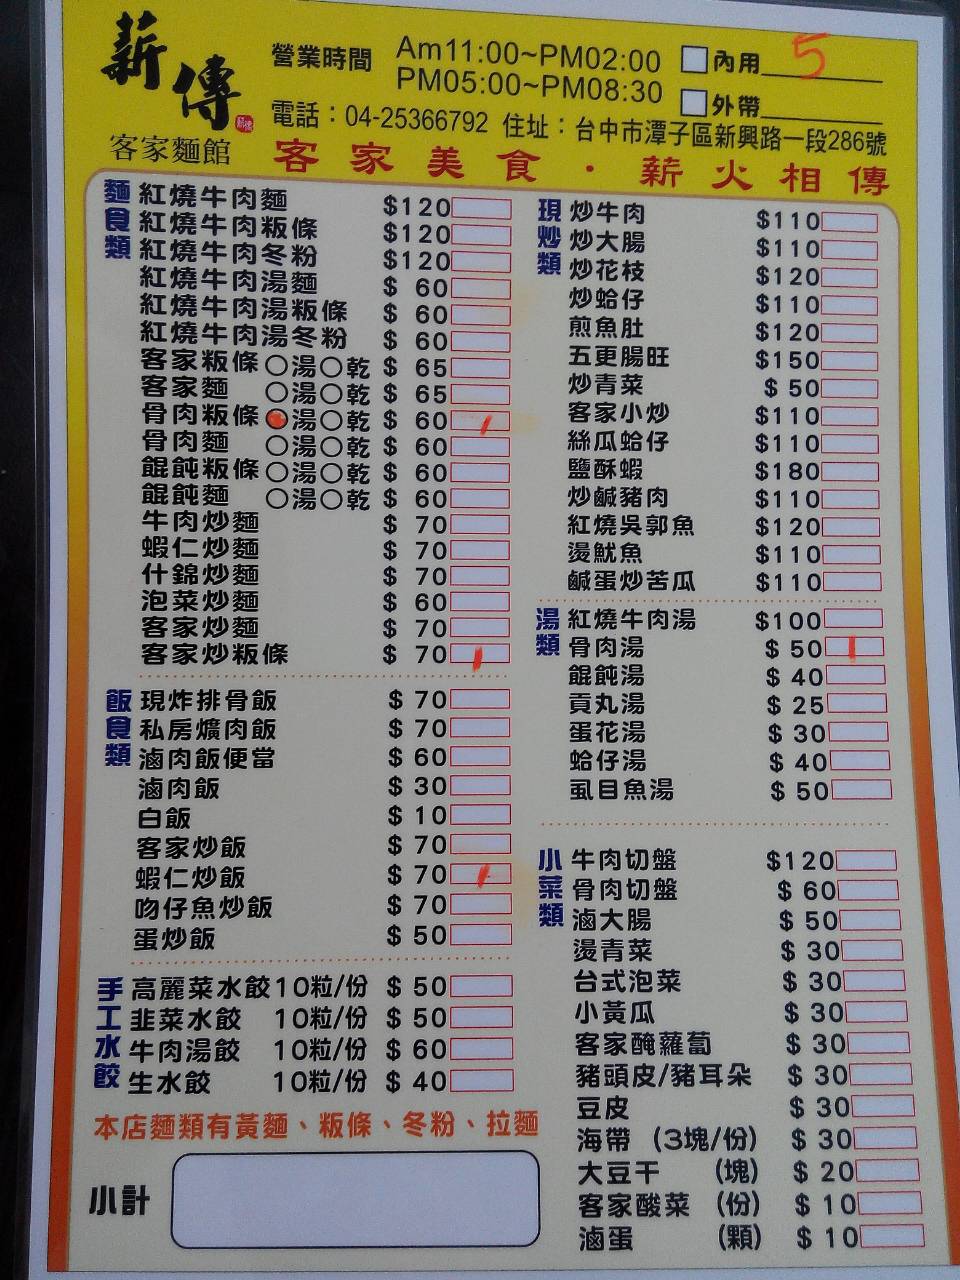 薪傳
客家麵館
營業時間 Am11:00~PM02:00 □內用 5
PM05:00~PM08:30 □外帶
電話：04-25366792 住址：台中市潭子區新興路一段286號
客家美食．薪火相傳
麵食類
紅燒牛肉麵 $120
紅燒牛肉粄條 $120
紅燒牛肉冬粉 $120
紅燒牛肉湯麵 $ 60
紅燒牛肉湯粄條 $ 60
紅燒牛肉湯冬粉 $ 60
客家粄條 ○湯○乾 $ 65
客家麵 ○湯○乾 $ 65
骨肉粄條 ○湯○乾 $ 60
骨肉麵 ○湯○乾 $ 60
餛飩粄條 ○湯○乾 $ 60
餛飩麵 ○湯○乾 $ 60
牛肉炒麵 $ 70
蝦仁炒麵 $ 70
什錦炒麵 $ 70
泡菜炒麵 $ 60
客家炒麵 $ 70
客家炒粄條 $ 70
飯食類
現炸排骨飯 $ 70
私房爌肉飯 $ 70
滷肉飯便當 $ 60
滷肉飯 $ 30
白飯 $ 10
客家炒飯 $ 70
蝦仁炒飯 $ 70
吻仔魚炒飯 $ 70
蛋炒飯 $ 50
手工水餃
高麗菜水餃10粒/份 $ 50
韭菜水餃 10粒/份 $ 50
牛肉湯餃 10粒/份 $ 60
生水餃 10粒/份 $ 40
本店麵類有黃麵、粄條、冬粉、拉麵
小計
現炒類
炒牛肉 $110
炒大腸 $110
炒花枝 $120
炒蛤仔 $110
煎魚肚 $120
五更腸旺 $150
炒青菜 $ 50
客家小炒 $110
絲瓜蛤仔 $110
鹽酥蝦 $180
炒鹹豬肉 $110
紅燒吳郭魚 $120
燙魷魚 $110
鹹蛋炒苦瓜 $110
湯類
紅燒牛肉湯 $100
骨肉湯 $ 50
餛飩湯 $ 40
貢丸湯 $ 25
蛋花湯 $ 30
蛤仔湯 $ 40
虱目魚湯 $ 50
小菜類
牛肉切盤 $120
骨肉切盤 $ 60
滷大腸 $ 50
燙青菜 $ 30
台式泡菜 $ 30
小黃瓜 $ 30
客家醃蘿蔔 $ 30
豬頭皮/豬耳朵 $ 30
豆皮 $ 30
海帶 (3塊/份) $ 30
大豆干 (塊) $ 20
客家酸菜 (份) $ 10
滷蛋 (顆) $ 10